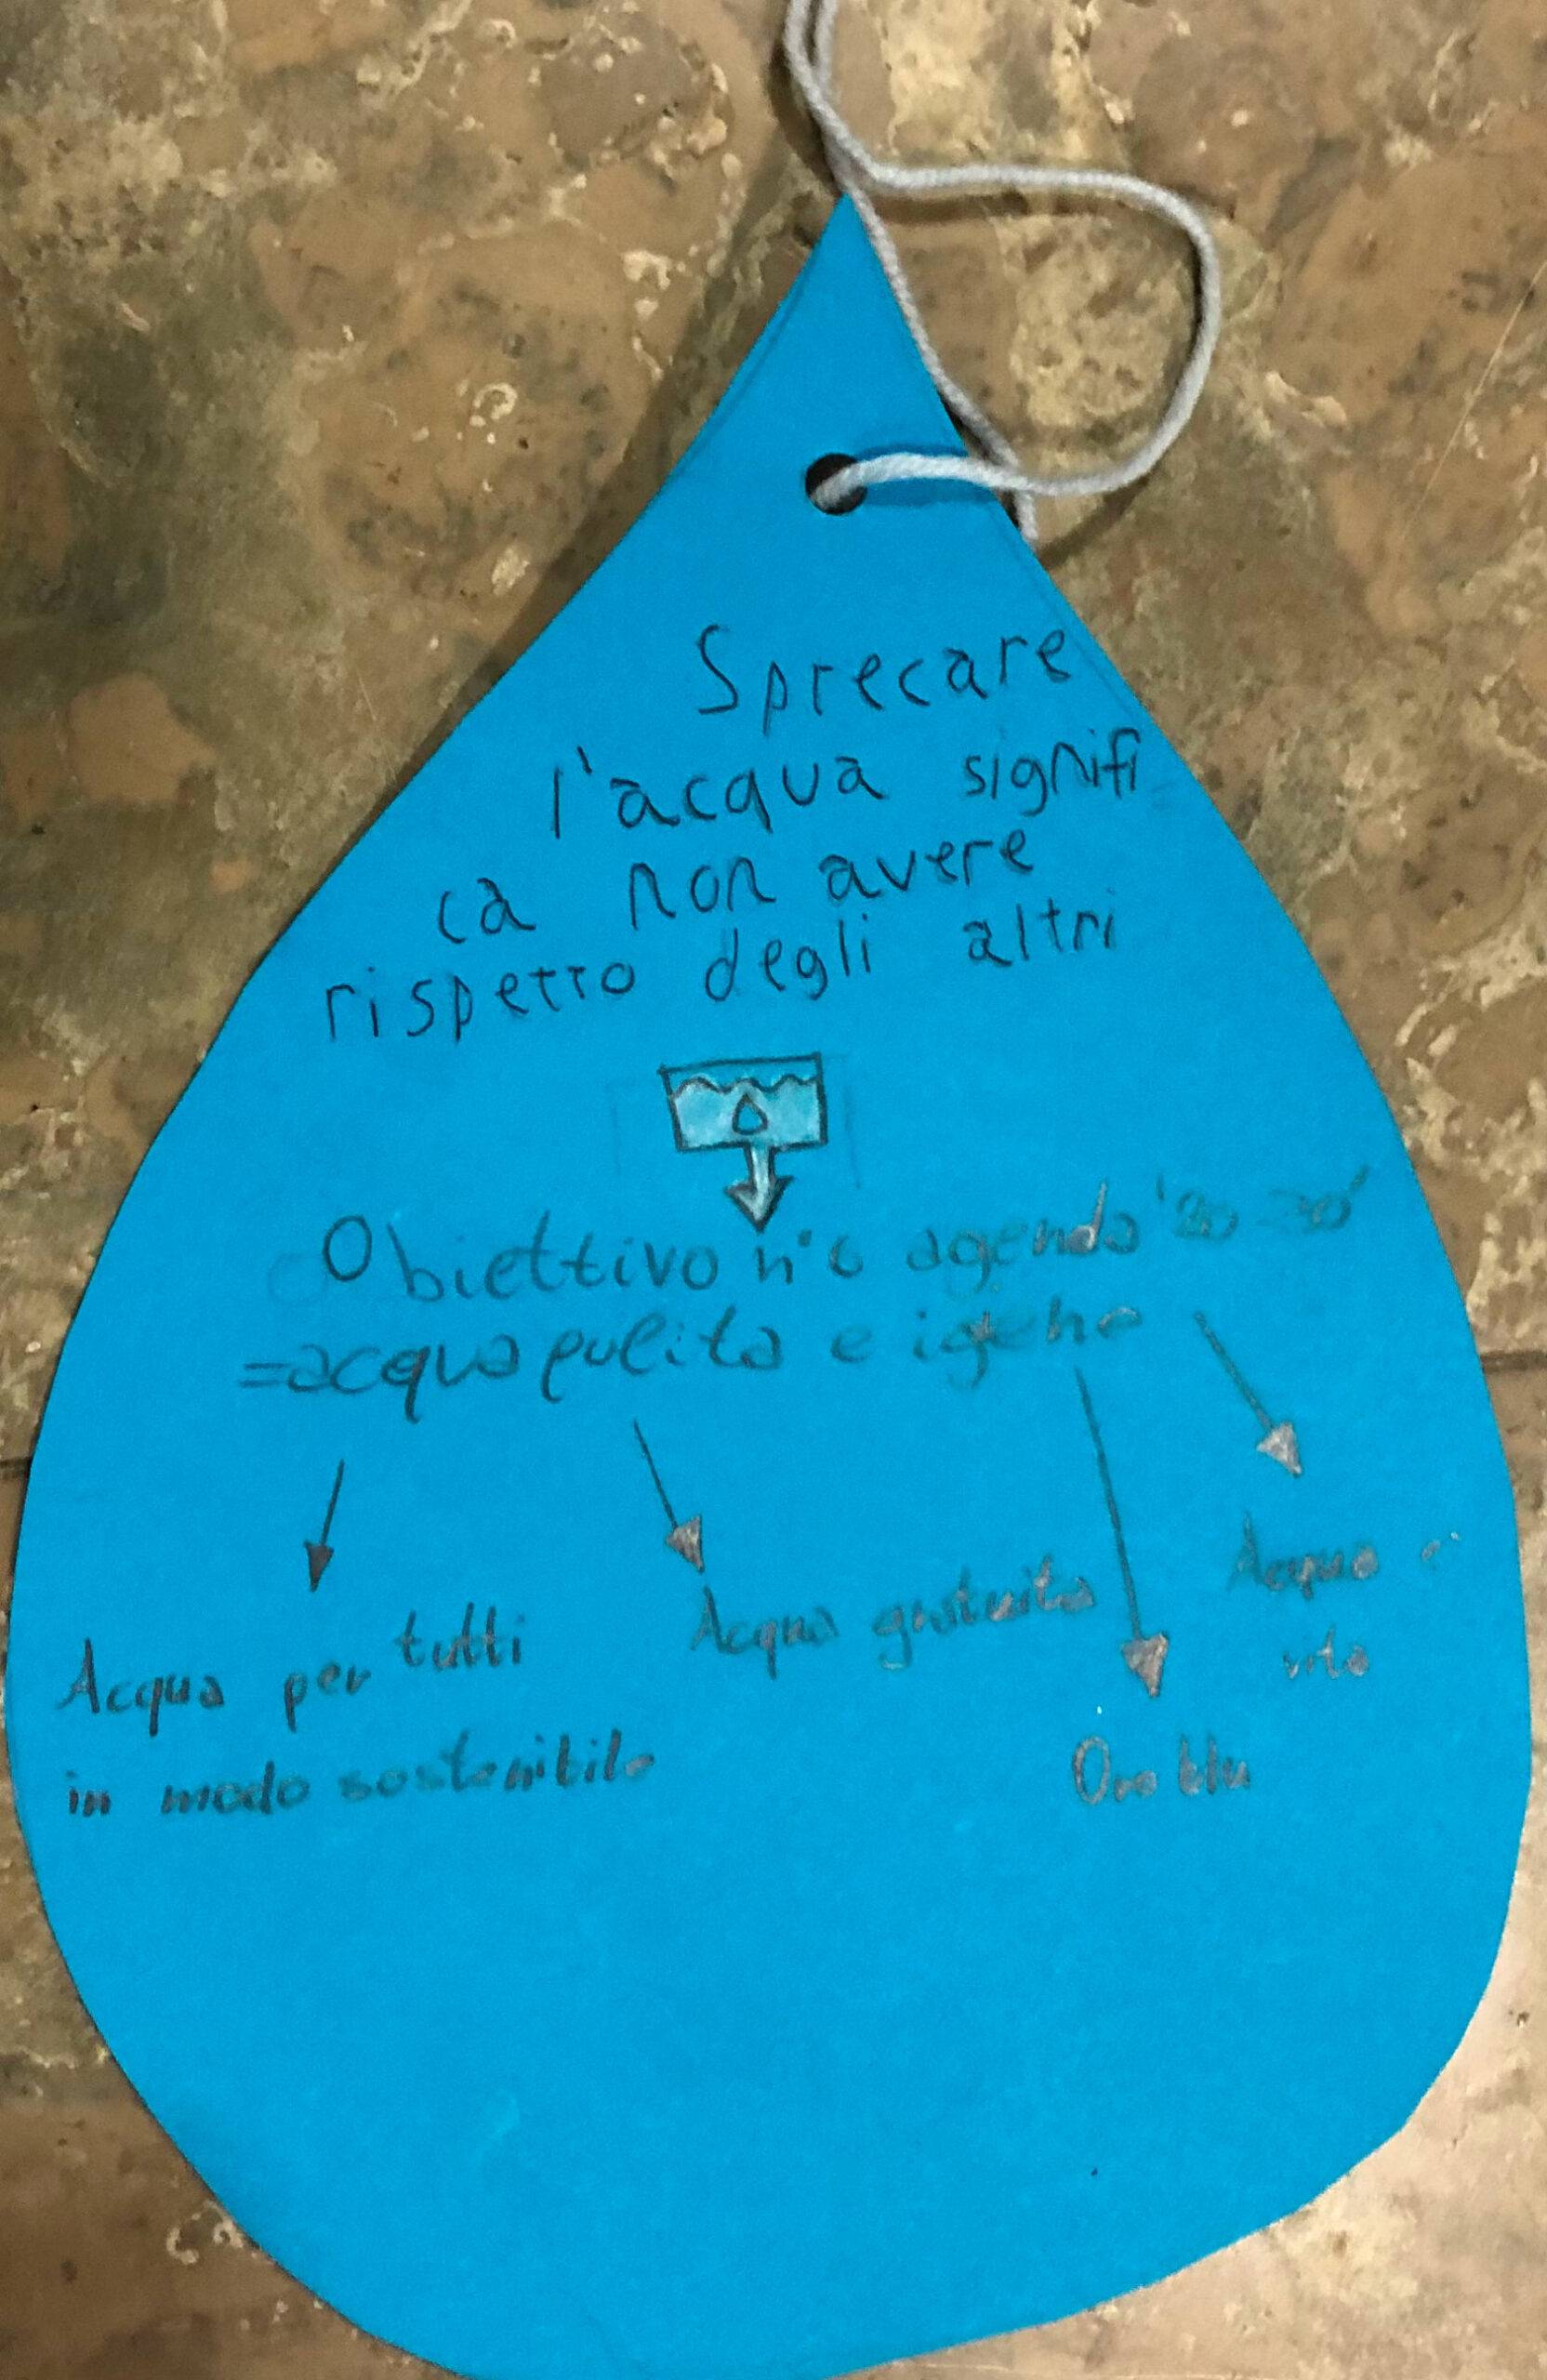 Sprecare
l'acqua signifi=
ca non avere
rispetto degli altri
Obiettivo n°6 agenda '20-30'
=acqua pulita e igene
Acqua per tutti
in modo sostenibile
Acqua gratuita
Oro blu
Acqua è
vita